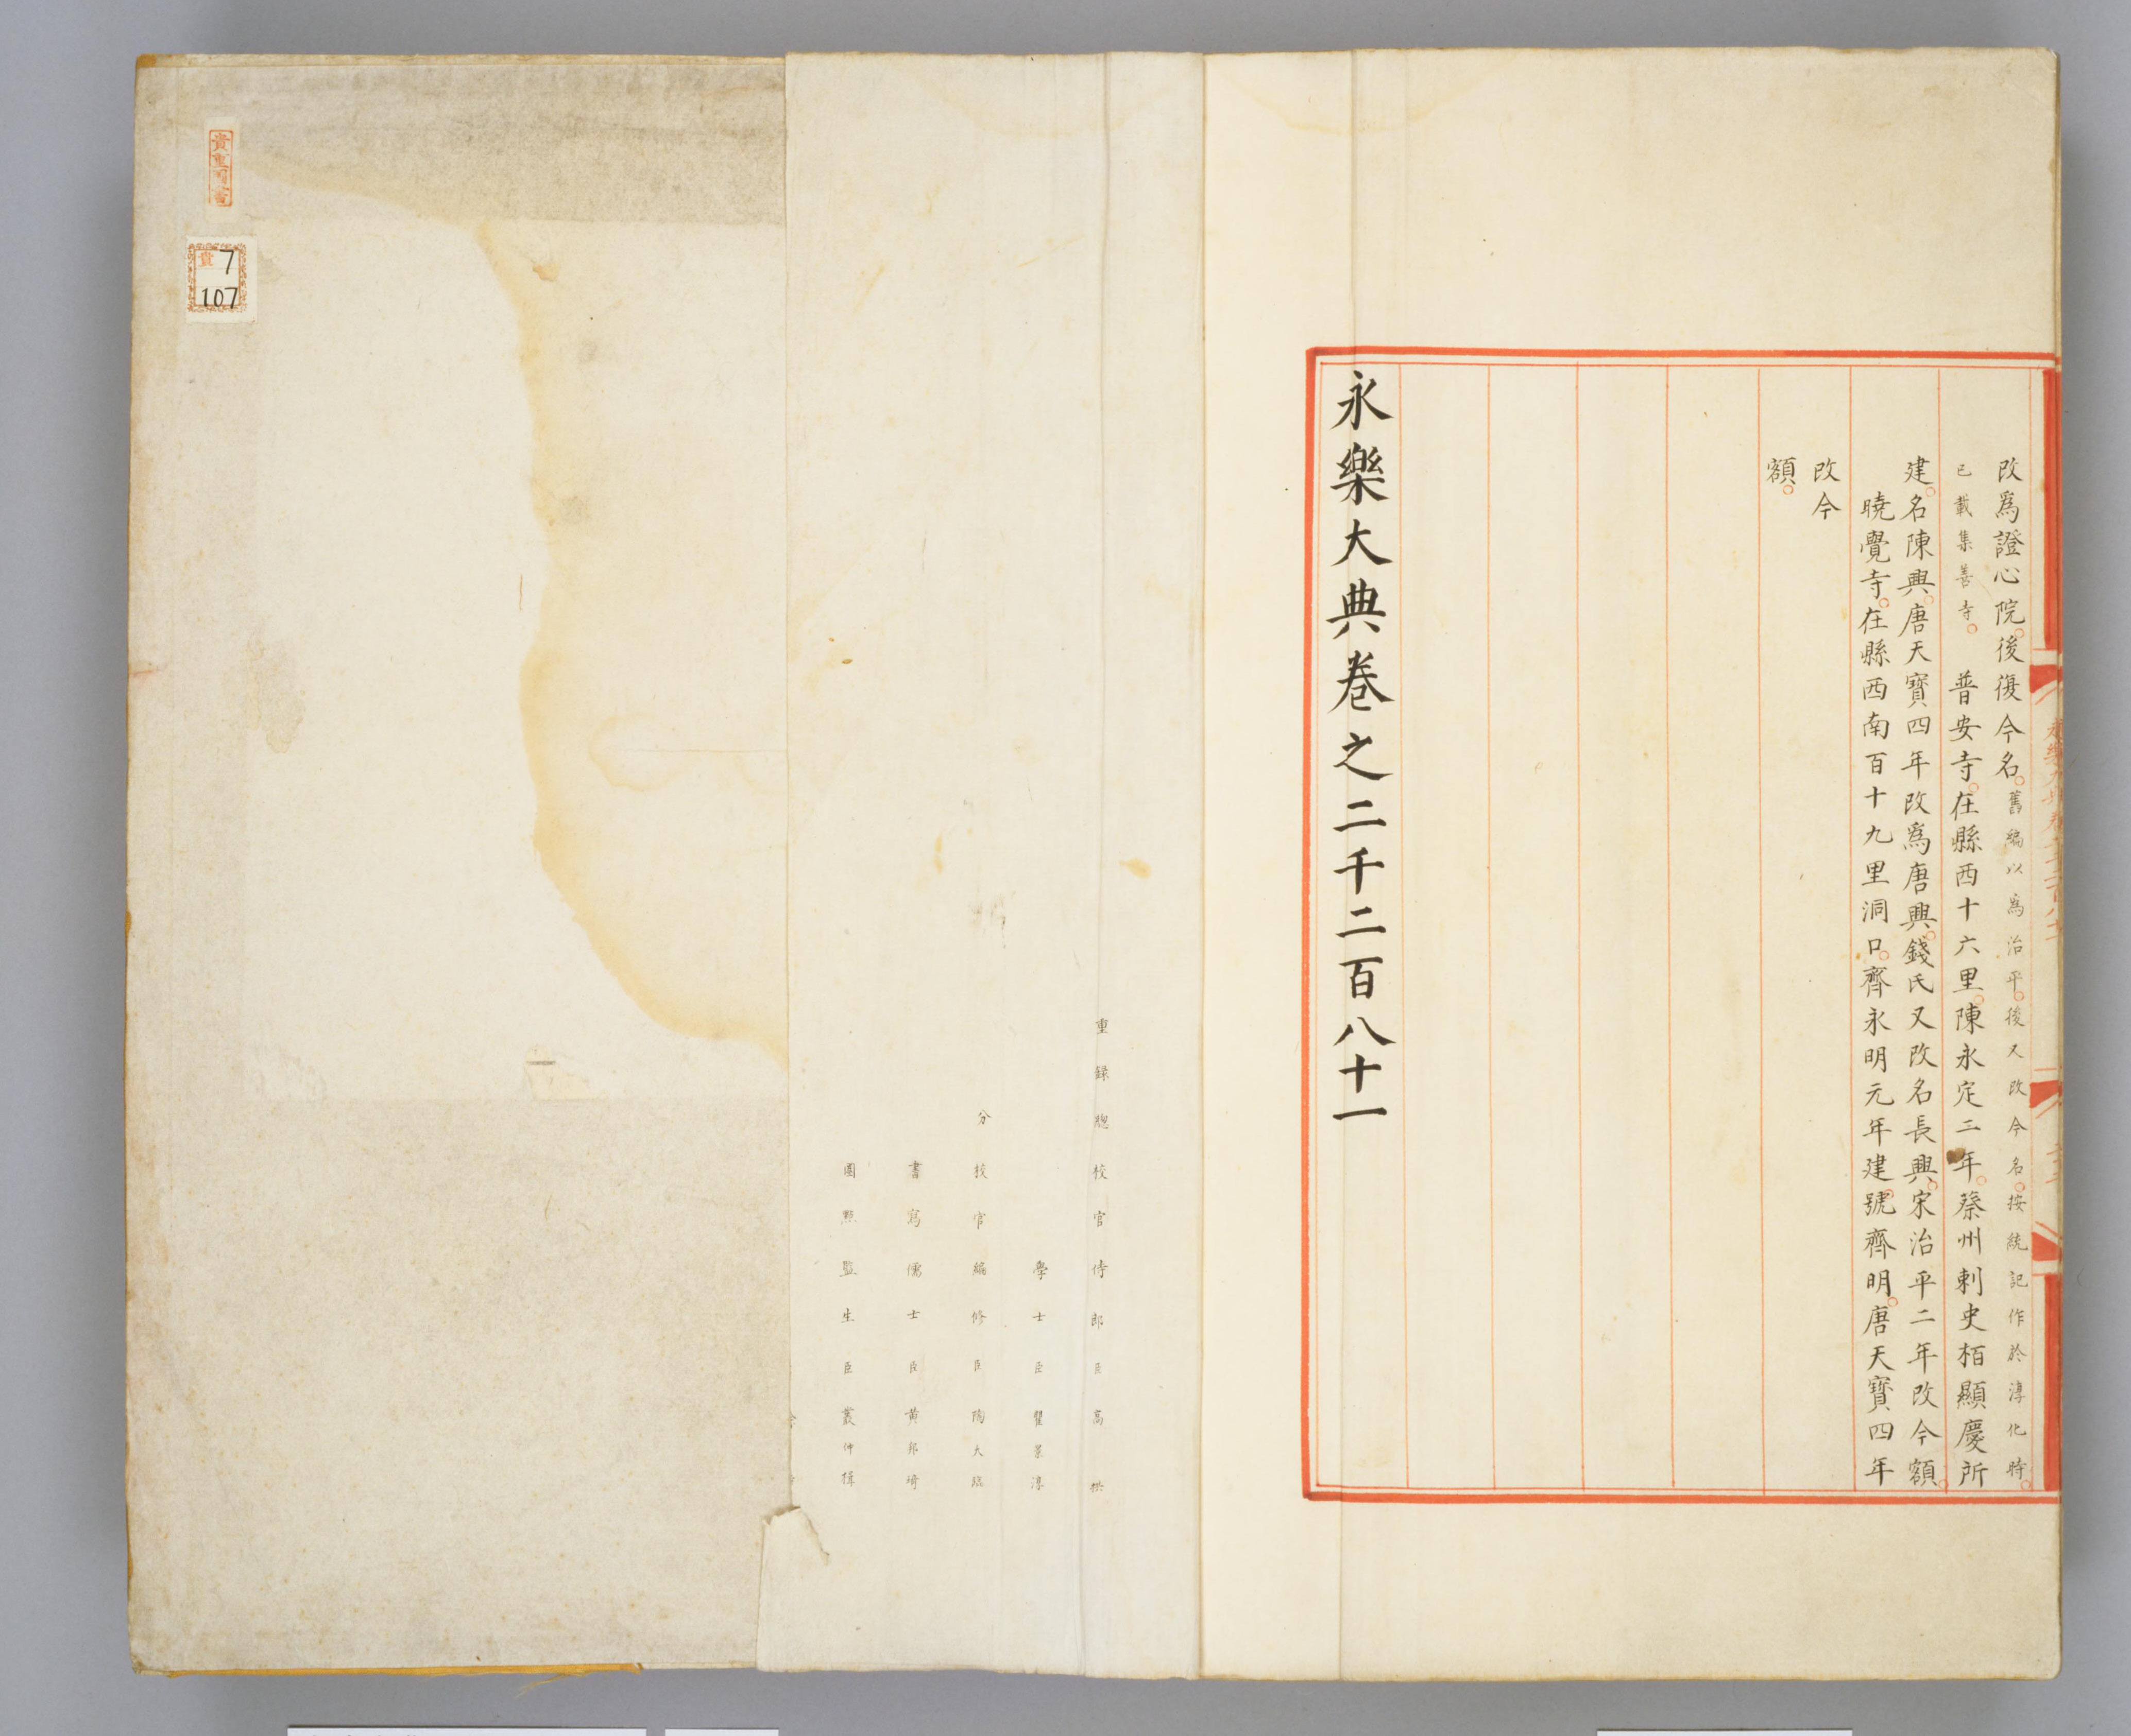 改爲證心院後復今名舊編以爲治平後又改今名按統記作於淳化時
已載集善寺　普安寺在縣西十六里陳永定二年蔡州刺史栢顯慶所
建名陳興唐天寶四年改爲唐興錢氏又改名長興宋治平二年改今額
曉覺寺在縣西南百十九里洞口齊永明元年建號齊明唐天寶四年
改今
額
永樂大典卷之二千二百八十一
重錄總校官侍郎臣高拱
學士臣瞿景淳
分校官編修臣陶大臨
書寫儒士臣黄邦琦
圈點監生臣叢仲楫
貴重圖書
貴 7
107